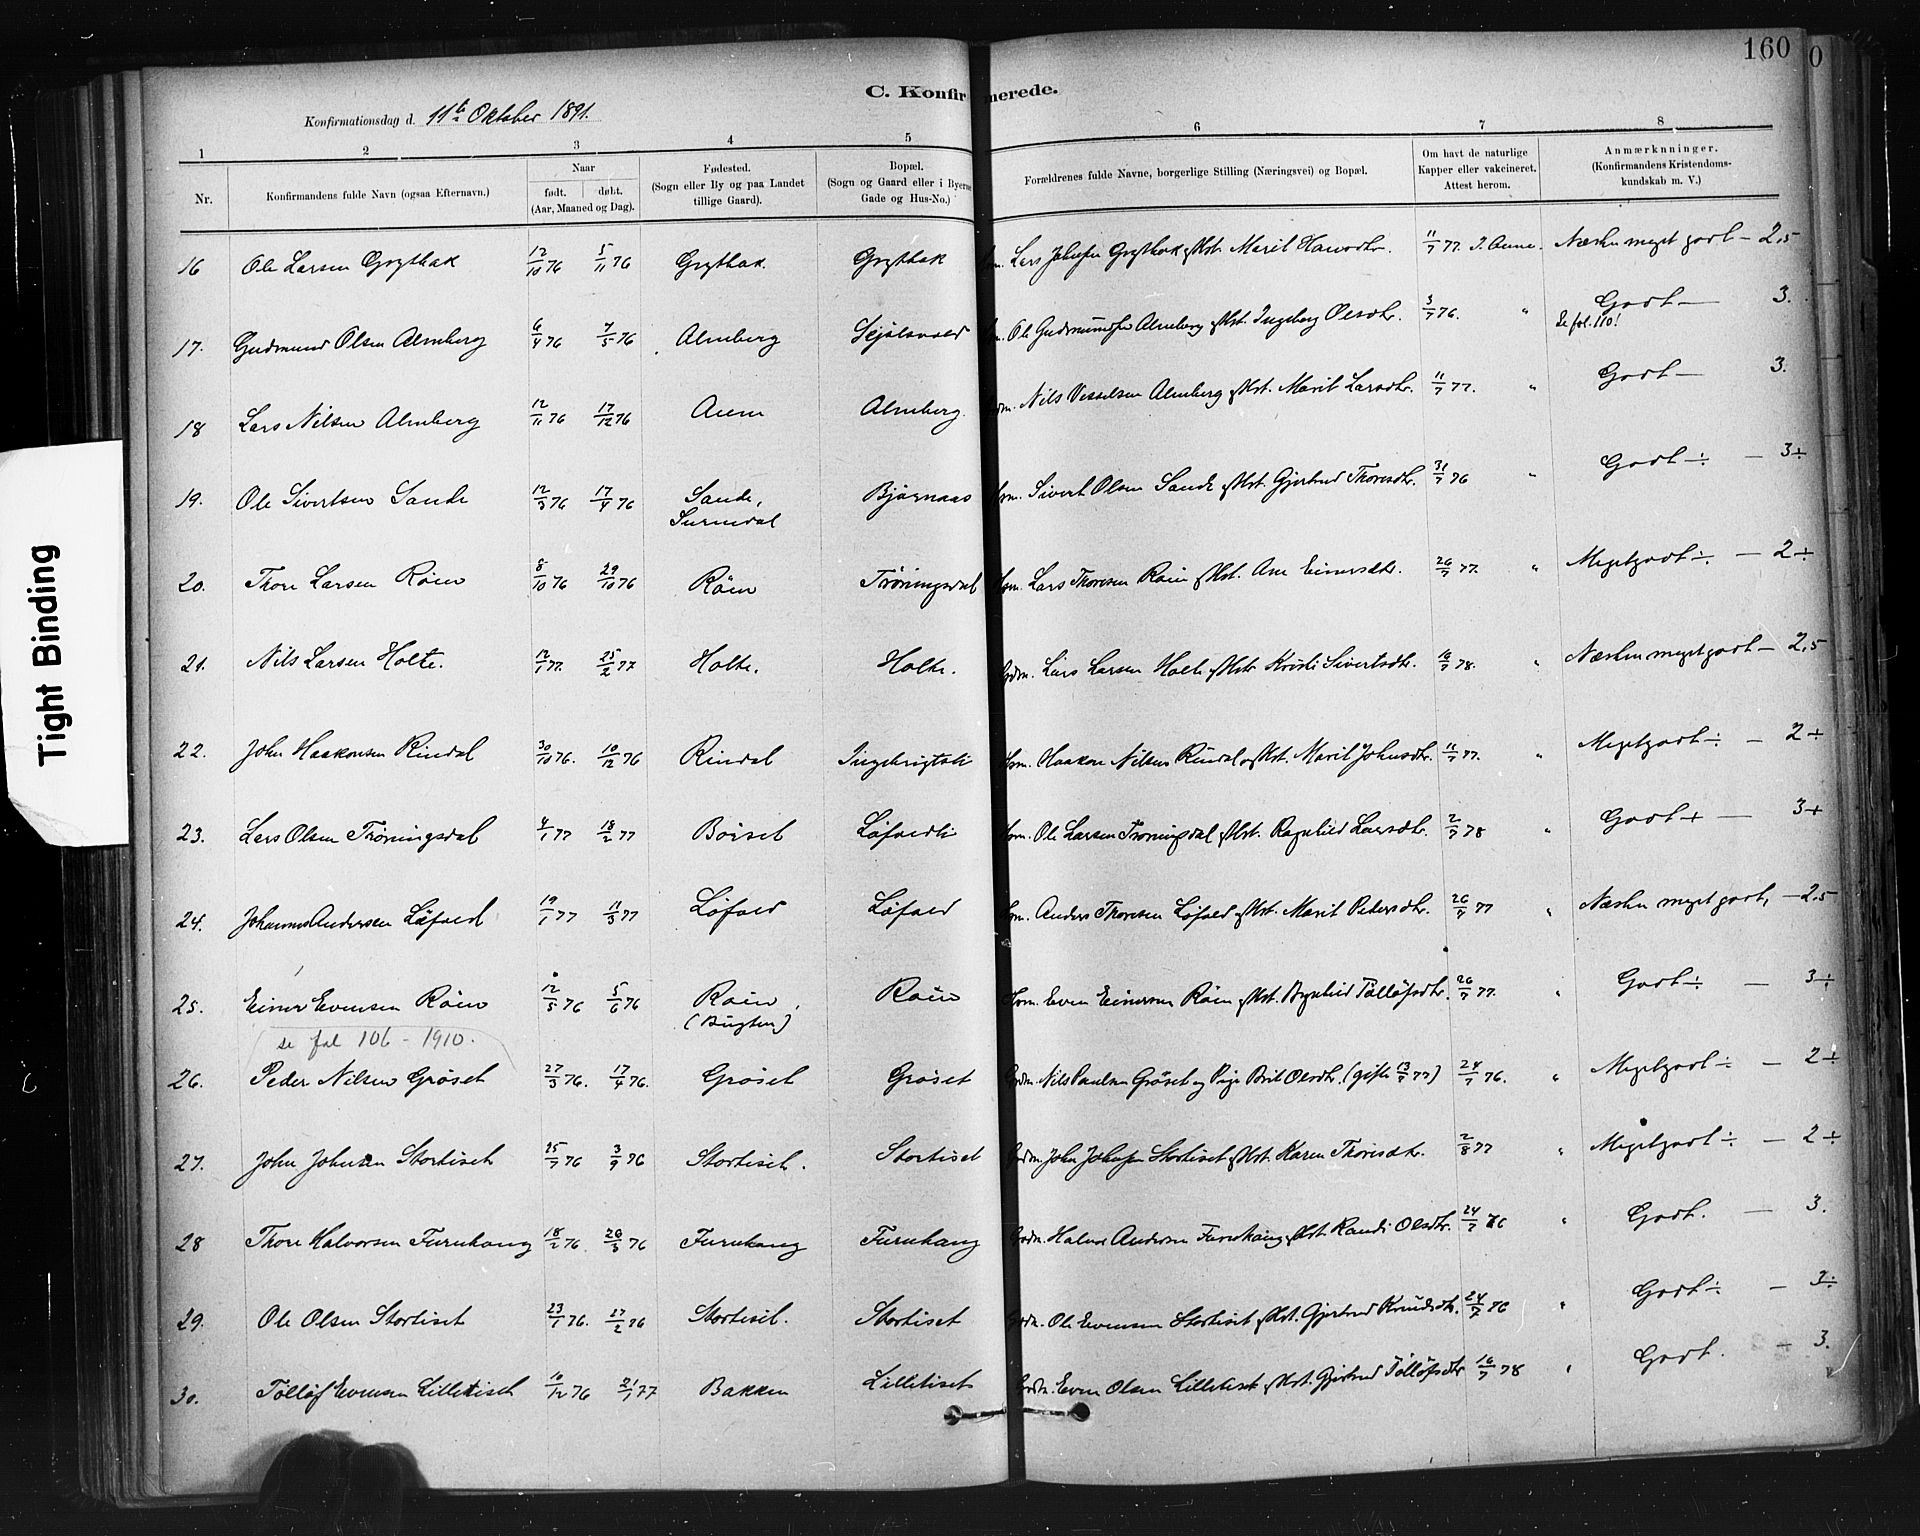 160
0
C. Konfirmerede.
Konfirmationsdag d. 11te Oktober 1891.
1 2 3 4 5 6 7 8
Nr. Konfirmandens fulde Navn (ogsaa Efternavn.) Naar født. døbt. (Aar, Maaned og Dag). Fødested. (Sogn eller By og paa Landet tillige Gaard). Bopæl. (Sogn og Gaard eller i Byerne Gade og Hus-No.) Forældrenes fulde Navne, borgerlige Stilling (Næringsvei) og Bopæl. Om havt de naturlige Kapper eller vakcineret. Attest herom. Anmærknninger. (Konfirmandens Kristendomskundskab m. V.)
16 Ole Larsen Grytbak 12/10 76 5/11 76 Grytbak. Grytbak Lars Johnsen Grytbak og Kst. Marit Hansdtr. 11/7 77. J. Aune. Næsten meget godt – 2,5
17. Gudmund Olsen Almberg 6/4 76 7/5 76 Almberg Sejalsvold Ole Gudmundsen Almberg og Kst. Ingeborg Olsdtr. 3/7 76. " Godt – 3.
Se fol. 110!
18 Lars Nilsen Almberg 12/11 76 17/12 76 Aune Almberg. Gdm. Nils Vesselsen Almberg og Kst. Marit Larsdtr. 11/7 77. " Godt – 3.
19. Ole Sivertsen Sande 12/3 76 17/4 76 Sande, Bjørnaas Hsm. Sivert Olsen Sande og Kst. Gjertrud Thoresdtr. 31/7 76 " Godt ÷ – 3÷
Surendal
20. Thore Larsen Røen 8/10 76 29/10 76 Røen Trøningsdal Hsm. Lars Thoresen Røen og Kst. Ane Einersdtr. 26/7 77. " Megetgodt ÷ – 2÷
21. Nils Larsen Holte. 12/1 77. 25/2 77 Holte. Holte. Gdm. Lars Larsen Holte og Kst. Kristi Sivertsdtr. 16/7 78. " Næsten meget godt – 2,5
22. John Haakonsen Rindal 30/10 76. 10/12 76 Rindal Ingebrigtsli Hsm. Haakon Nilsen Rindal og Kst. Marit Johnsdtr. 11/7 77. " Megetgodt ÷ – 2÷
23. Lars Olsen Trøningsdal 4/1 77 18/2 77 Bøiset Løfaldli Hsm. Ole Larsen Trøningsdal og Kst. Ragnhild Larsdtr. 2/7 78 " Godt + – 3+
24. Johannes Andersen Løfald 19/1 77 11/3 77 Løfald Løfald Hsm. Anders Thoresen Løfald og Kst. Marit Pedersdtr. 26/7 77 " Næsten meget godt, – 2,5
25. Einer Evensen Røen 12/5 76 5/6 76 Røen, Røen Hsm. Even Einersen Røen og Kst. Tølløfsdtr. 26/7 77. " Godt ÷ – 3÷
(Bugten)
se fol 106 – 1910.
26. Peder Nilsen Grøset 27/3 76. 17/4 76. Grøset Grøset Gdm. Nils Paulsen Grøset og Pige Brit Olsdtr. (gifte 13/7 77) 24/7 76. " Megetgodt ÷ – 2÷
27. John Johnsen Stortiset 25/7 76 3/9 76 Stortiset. Stortiset Gdm. John Johnsen Stortiset og Kst. Karen Thoresdtr. 2/8 77 " Megetgodt ÷ – 2÷
28 Thore Halvorsen Furuhaug 18/2 76. 26/3 76 Furuhaug Furuhaug Gdm. Halvor Andersen Furuhaug og Kst. Randi Olsdtr. 24/7 76 " Godt. – 3.
29. Ole Olsen Stortiset 23/1 76. 27/2 76 Stortiset. Stortiset Gdm. Ole Evensen Stortiset og Kst. Gjertrud Knudsdtr. 24/7 76 " Godt ÷ – 3÷
30. Tølløf Evensen Lilletiset 10/12 76 21/1 77 Bakken Lilletiset Gdm. Even Olsen Lilletiset og Kst. Gjertrud Tølløfsdtr 16/7 78 " Godt. – 3.
Tight Binding